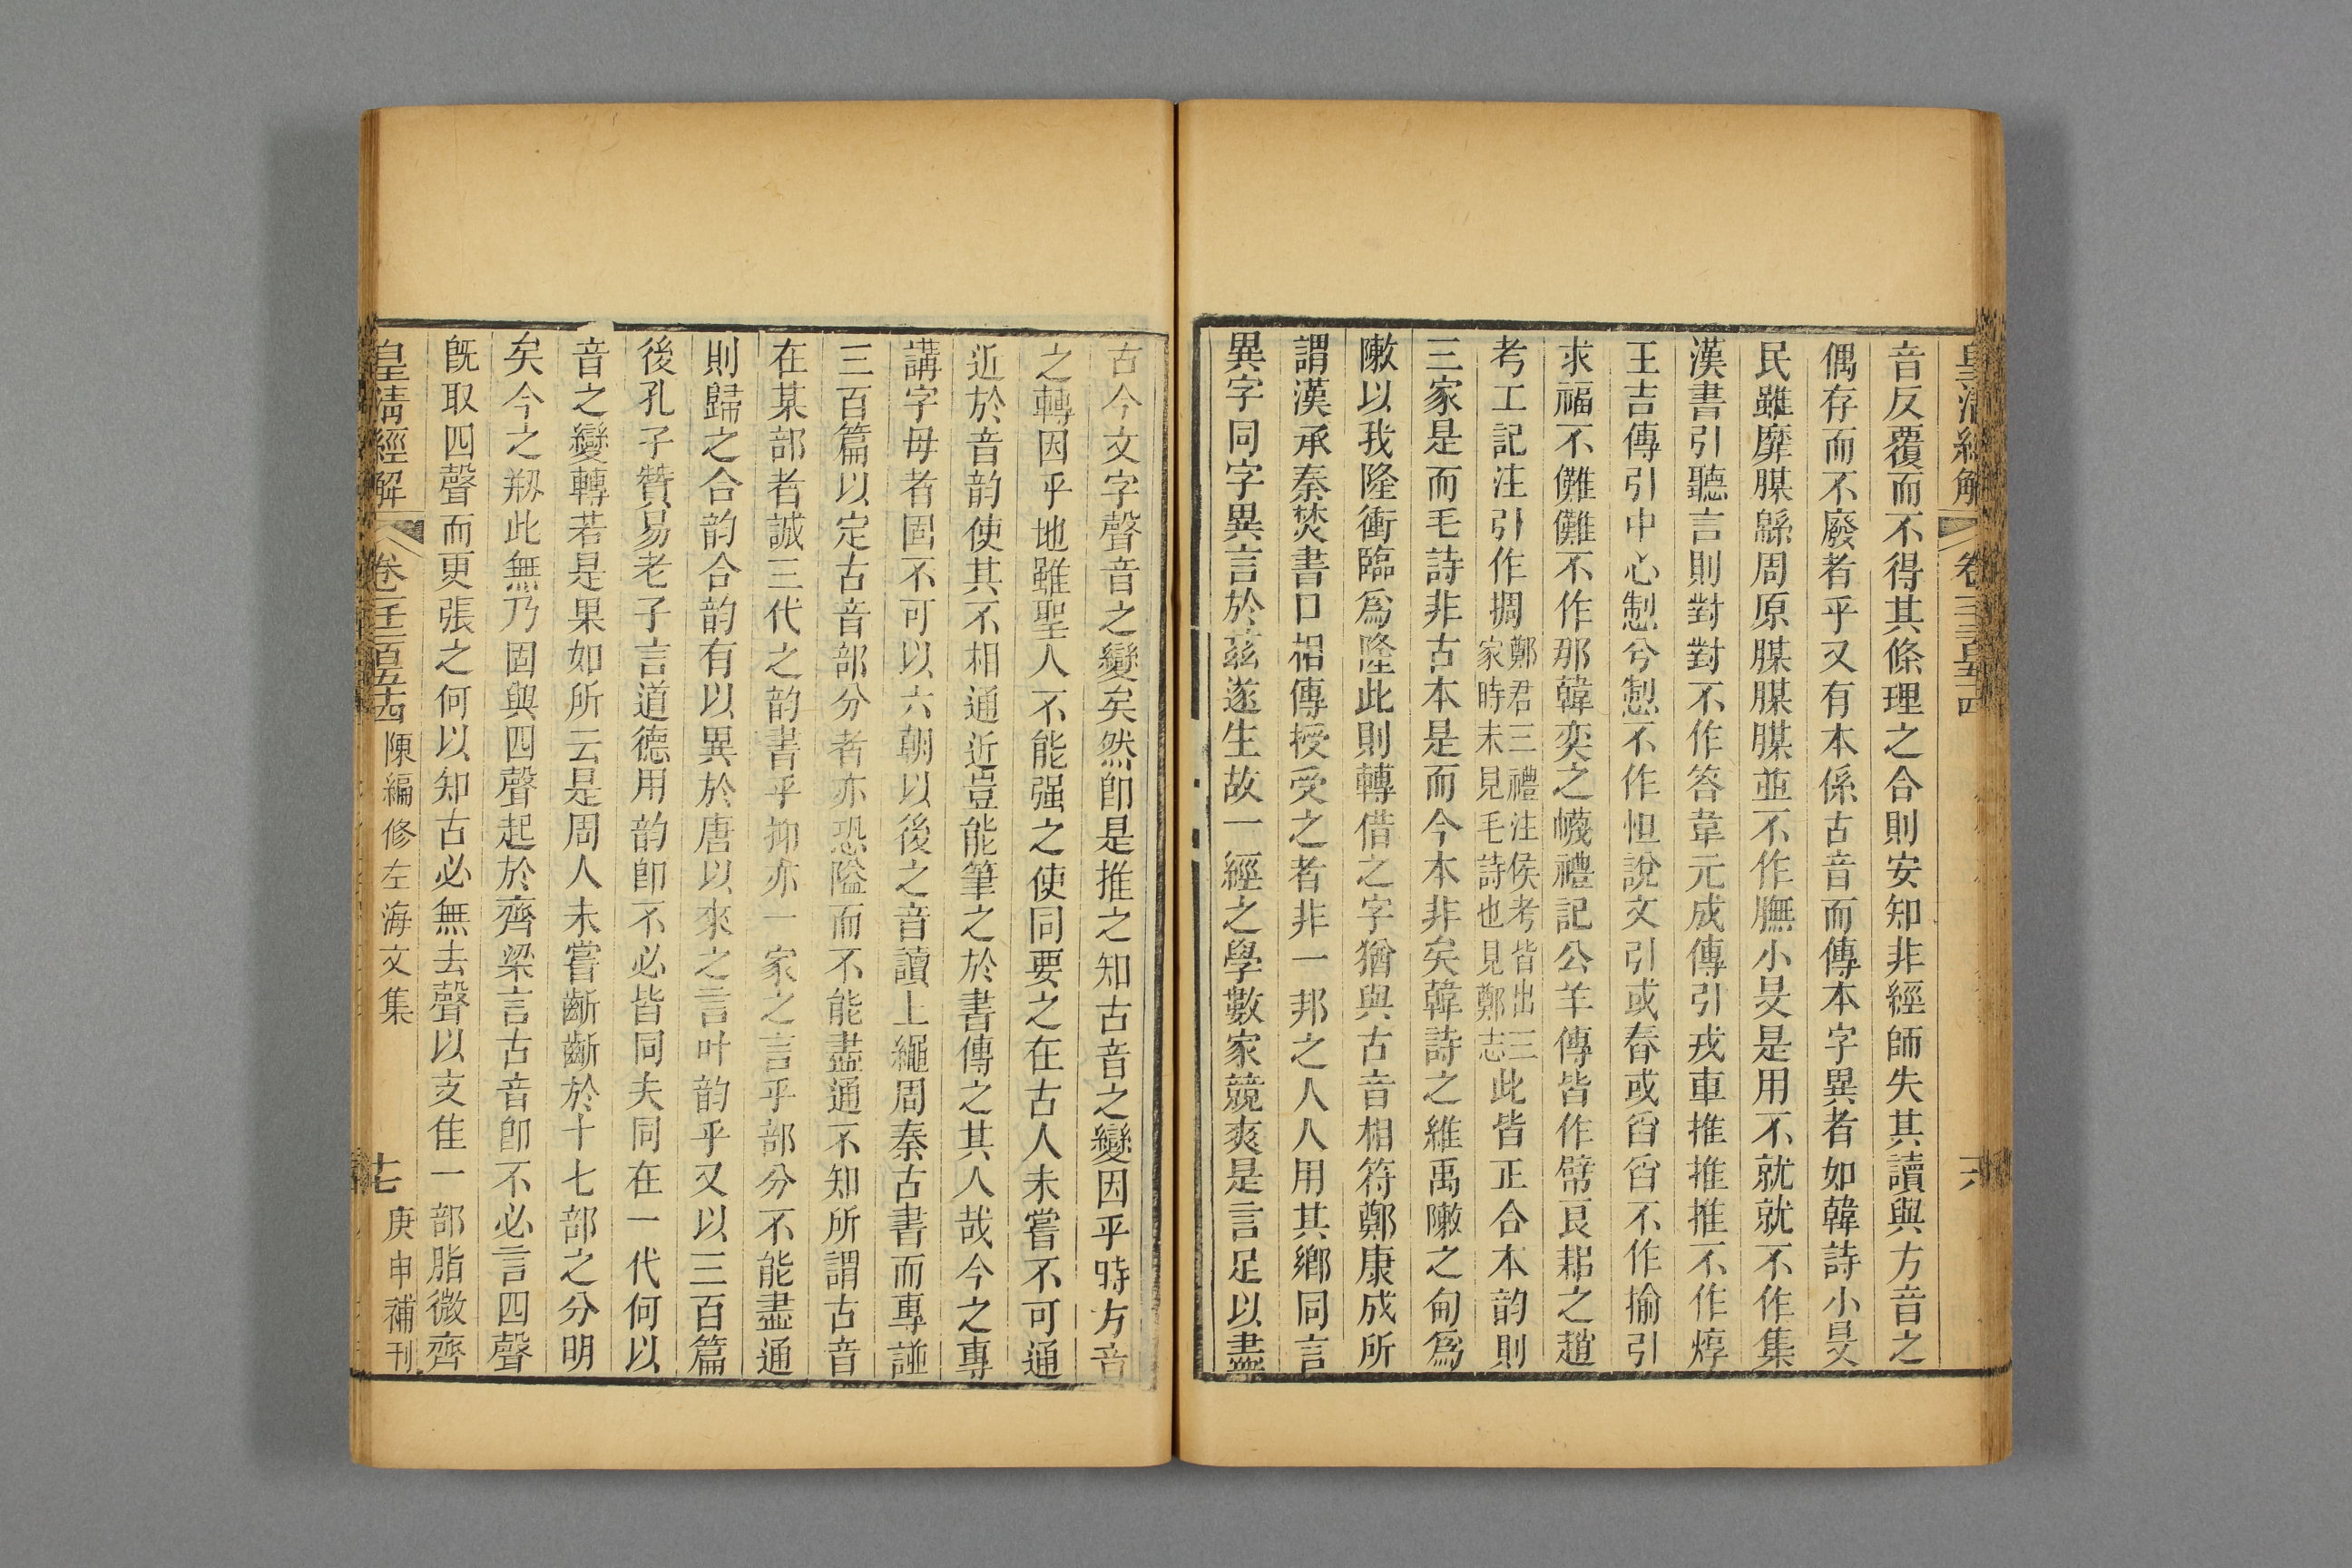 皇清經解 卷一千二百五十四 六
音反覆而不得其條理之合則安知非經師失其讀與方音之
偶存而不廢者乎又有本係古音而傳本字異者如韓詩小旻
民雖靡腜緜周原腜腜並不作膴小旻是用不就就不作集
漢書引聽言則對對不作答韋元成傳引戎車推推不作焞
王吉傳引中心㣿兮㣿不作怛說文引或舂或舀舀不作揄引
求福不儺儺不作那韓奕之幭禮記公羊傳皆作幦良耜之趙
考工記注引作掆鄭君三禮注侯考皆出三家時未見毛詩也見鄭志此皆正合本韵則
三家是而毛詩非古本是而今本非矣韓詩之維禹敶之甸爲
敶以我隆衝臨爲隆此則轉借之字猶與古音相符鄭康成所
謂漢承秦焚書口相傳授受之者非一邦之人人用其鄉同言
異字同字異言於茲遂生故一經之學數家競爽是言足以盡
古今文字聲音之變矣然卽是推之知古音之變因乎時方音
之轉因乎地雖聖人不能强之使同要之在古人未嘗不可通
近於音韵使其不相通近豈能筆之於書傳之其人哉今之專
講字母者固不可以六朝以後之音讀上繩周秦古書而專諩
三百篇以定古音部分者亦恐隘而不能盡通不知所謂古音
在某部者誠三代之韵書乎抑亦一家之言乎部分不能盡通
則歸之合韵合韵有以異於唐以來之言叶韵乎又以三百篇
後孔子贊易老子言道德用韵卽不必皆同夫同在一代何以
音之變轉若是果如所云是周人未嘗齗齗於十七部之分明
矣今之剏此無乃固與四聲起於齊梁言古音卽不必言四聲
旣取四聲而更張之何以知古必無去聲以支佳一部脂微齊
皇清經解 卷一千二百五十四 陳編修左海文集 七 庚申補刊